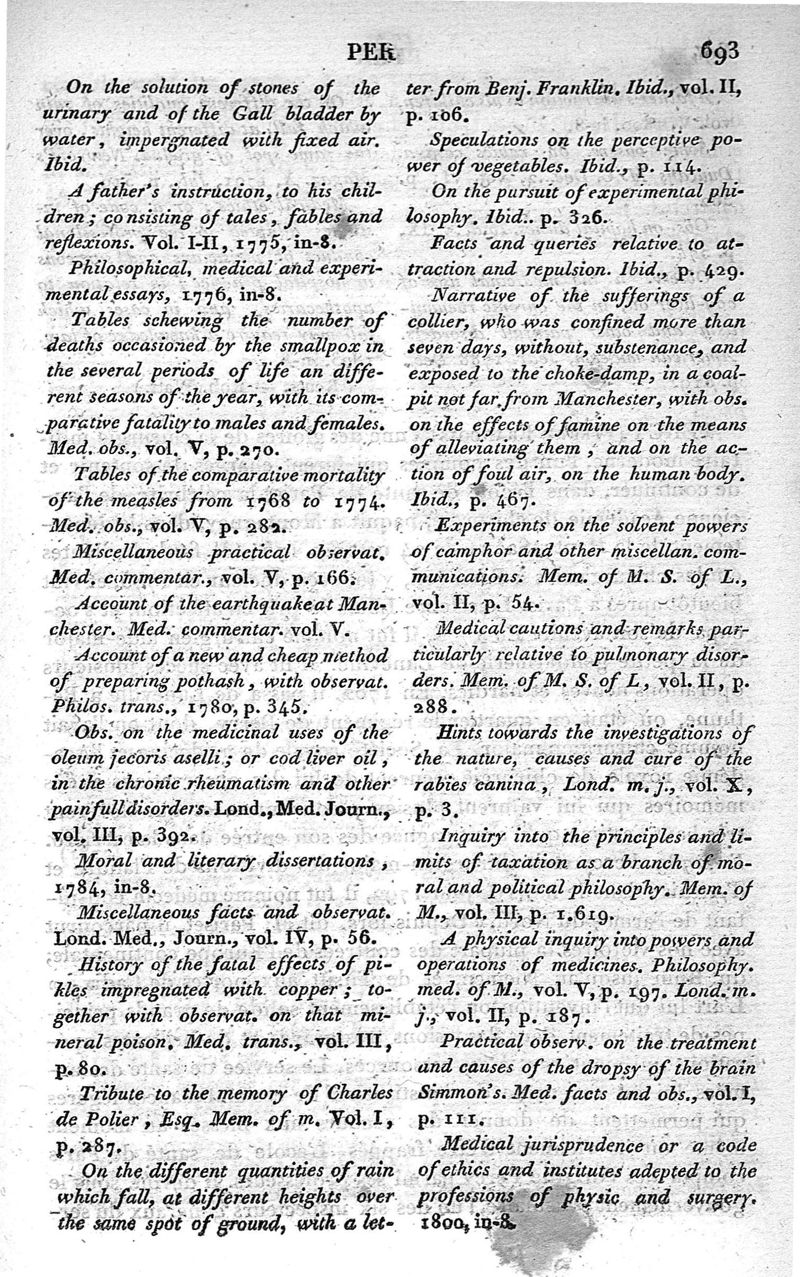 PER 693
On the solution of stones of the
urinary and of the Gall bladder by
water, impergnated with fixed air.
Ibid.
A father's instruction, to his chil-
dren ; consisting of tales, fables and
reflexions. Vol. I-II, 1775, in-8.
Philosophical, medical and experi-
mental essays, 1776, in-8.
Tables schewing the number of
deaths occasioned by the smallpox in
the several periods of life an diffe-
rent seasons of the year, with its com-
parative fatality to males and females.
Med. obs., vol. V, p. 270.
Tables of the comparative mortality
of the measles from 1768 to 1774.
Med. obs., vol. V, p. 282.
Miscellaneous practical observat.
Med. commentar., vol. V, p. 166.
Account of the earthquake at Man-
chester. Med. commentar. vol. V.
Account of a new and cheap method
of preparing pothash, with observat.
Philos. trans., 1780, p. 345.
Obs. on the medicinal uses of the
oleum jecoris aselli ; or cod liver oil,
in the chronic rheumatism and other
painfull disorders. Lond., Med. Journ.,
vol. III, p. 392.
Moral and literary dissertations,
1784, in-8.
Miscellaneous facts and observat.
Lond. Med., Journ., vol. IV, p. 56.
History of the fatal effects of pi-
kles impregnated with copper ; to-
gether with observat. on that mi-
neral poison. Med. trans., vol. III,
p. 80.
Tribute to the memory of Charles
de Polier, Esq. Mem. of m. Vol. I,
p. 287.
On the different quantities of rain
which fall, at different heights over
the same spot of ground, with a let-
ter from Benj. Franklin. Ibid., vol. II,
p. 106.
Speculations on the perceptive po-
wer of vegetables. Ibid., p. 114.
On the pursuit of experimental phi-
losophy. Ibid.. p. 326.
Facts and queries relative to at-
traction and repulsion. Ibid., p. 429.
Narrative of the sufferings of a
collier, who was confined more than
seven days, without, substenance, and
exposed to the choke-damp, in a coal-
pit not far from Manchester, with obs.
on the effects of famine on the means
of alleviating them, and on the ac-
tion of foul air, on the human body.
Ibid., p. 467.
Experiments on the solvent powers
of camphor and other miscellan. com-
munications. Mem. of M. S. of L.,
vol. II, p. 54.
Medical cautions and remarks par-
ticularly relative to pulmonary disor-
ders. Mem. of M. S. of L, vol. II, p.
288.
Hints towards the investigations of
the nature, causes and cure of the
rabies canina, Lond. m. j., vol. X,
p. 3.
Inquiry into the principles and li-
mits of taxation as a branch of mo-
ral and political philosophy. Mem. of
M., vol. III, p. 1.619.
A physical inquiry into powers and
operations of medicines. Philosophy.
med. of M., vol. V, p. 197. Lond. m.
j., vol. II, p. 187.
Practical observ. on the treatment
and causes of the dropsy of the brain
Simmon's. Med. facts and obs., vol. I,
p. 111.
Medical jurisprudence or a code
of ethics and institutes adepted to the
professions of physic and surgery.
1800, in-8.